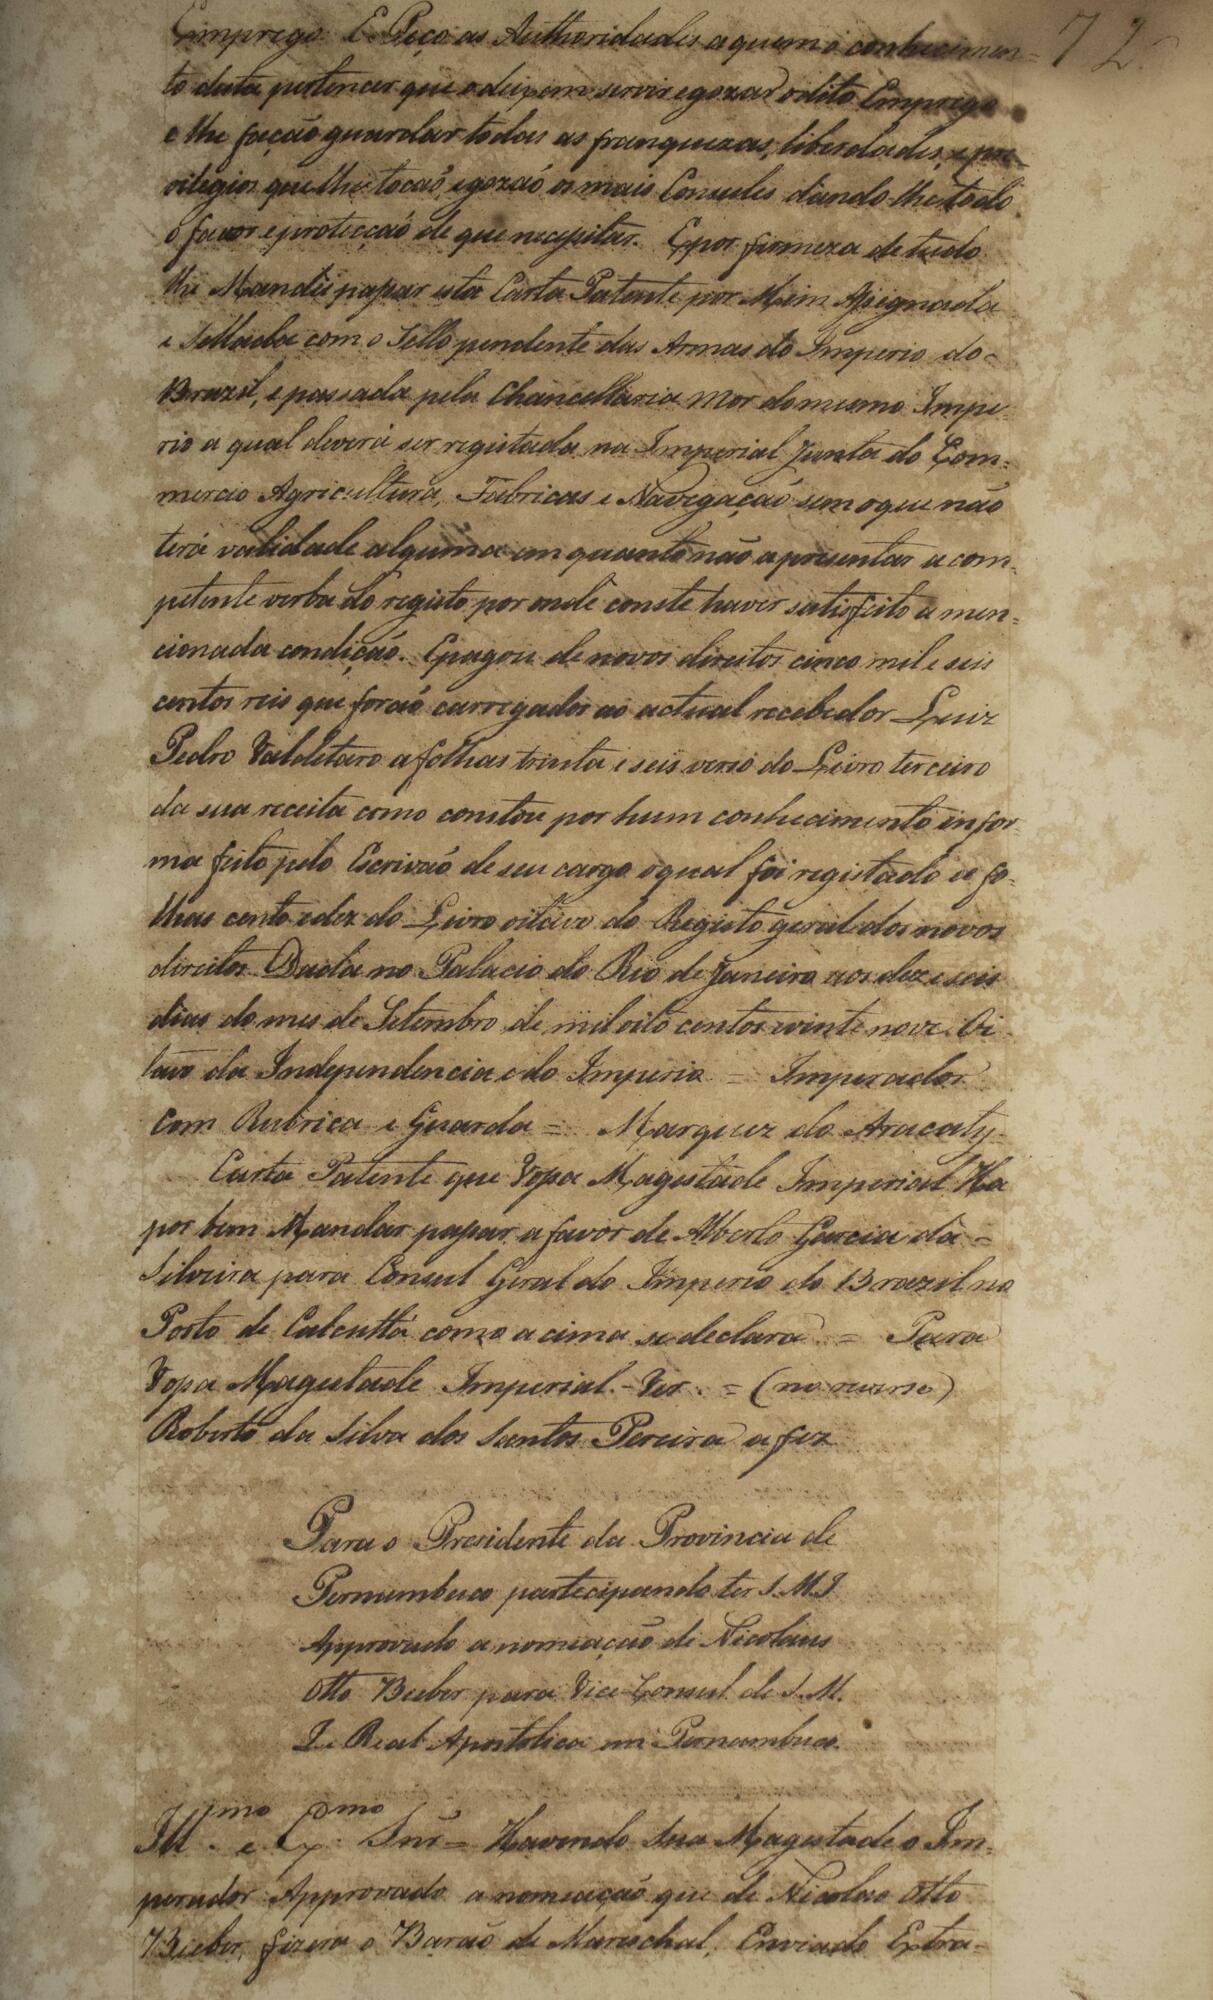 72.
Emprego. E Peço as Authoridades a quem o conhecimen=
to desta pertencer que o deixem servir e gozar o dito Emprego
e lhe fação guardar todas as franquezas, liberdades, e pri-
vilegios que lhe tocaõ e gozaõ os mais Consules dando-lhe todo
o favor e protecçaõ de que necessitar. E por firmeza de tudo
lhe Mandei passar esta Carta Patente por Mim Assignada
e Sellada com o Sello pendente das Armas do Imperio do-
Brazil, e passada pela Chancellaria Mor do mesmo Impe-
rio a qual deverá ser registada na Imperial Junta do Com=
mercio Agricultura, Fabricas e Navegaçaõ sem o que não
terá validade alguma em quanto não apresentar a com-
petente verba do registo por onde conste haver satisfeito a men=
cionada condiçaõ. E pagou de novos direitos cinco mil e seis
centos reis que foraõ carregados ao actual recebedor Luiz
Pedro Valdetaro a folhas trinta e seis verso do Livro terceiro
da sua receita como constou por hum conhecimento em for-
ma feito pelo Escrivaõ de seu cargo o qual foi registado a fo-
lhas cento e dez do Livro oitavo do Registo geral dos novos
direitos. Dada no Palacio do Rio de Janeiro aos dez e seis
dias do mes de Setembro de mil oito centos vinte nove. Oi-
tavo da Independencia e do Imperio = Imperador
Com Rubrica e Guarda = Marquez do Aracaty-
Carta Patente que Vossa Magestade Imperial Ha
por bem Mandar passar a favor de Alberto Garcia da =
Silveira para Consul Geral do Imperio do Brazil no
Porto de Calcuttá como acima se declara = Para
Vossa Magestade Imperial - Ver. = (no reverso)
Roberto da Silva dos Santos Pereira a fez
Para o Presidente da Provincia de
Pernambuco partecipando ter S. M. I
Approvado a nomeaçaõ de Nicolaus
Otto Bieber para Vice-Consul de S. M.
I. e Real Apostolica em Pernambuco.
Ill.mo e Ex.mo Snr = Havendo Sua Magestade o Im-
perador Approvado a nomeaçaõ que de Nicolao Otto
Bieber, fizera o Baraõ de Mareschal, Enviado Extra-